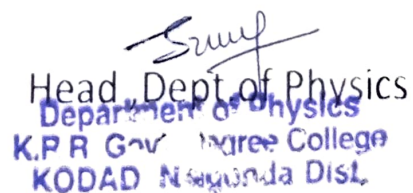 Head, Dept of Physics
Department of Physics
K.P R Gov Degree College
KODAD Nalgonda Dist.